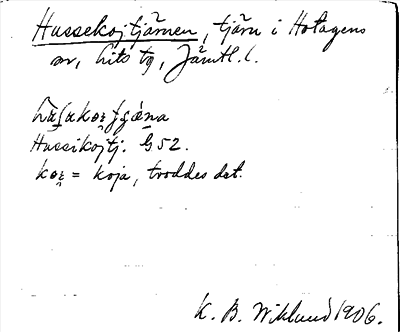 Hussekojtjärnen, tjärn i Hotagens
sn, Lits tg, Jämtl. l.
Hussikojtj. G 52.
= koja, troddes det.
K. B. Wiklund 1906.